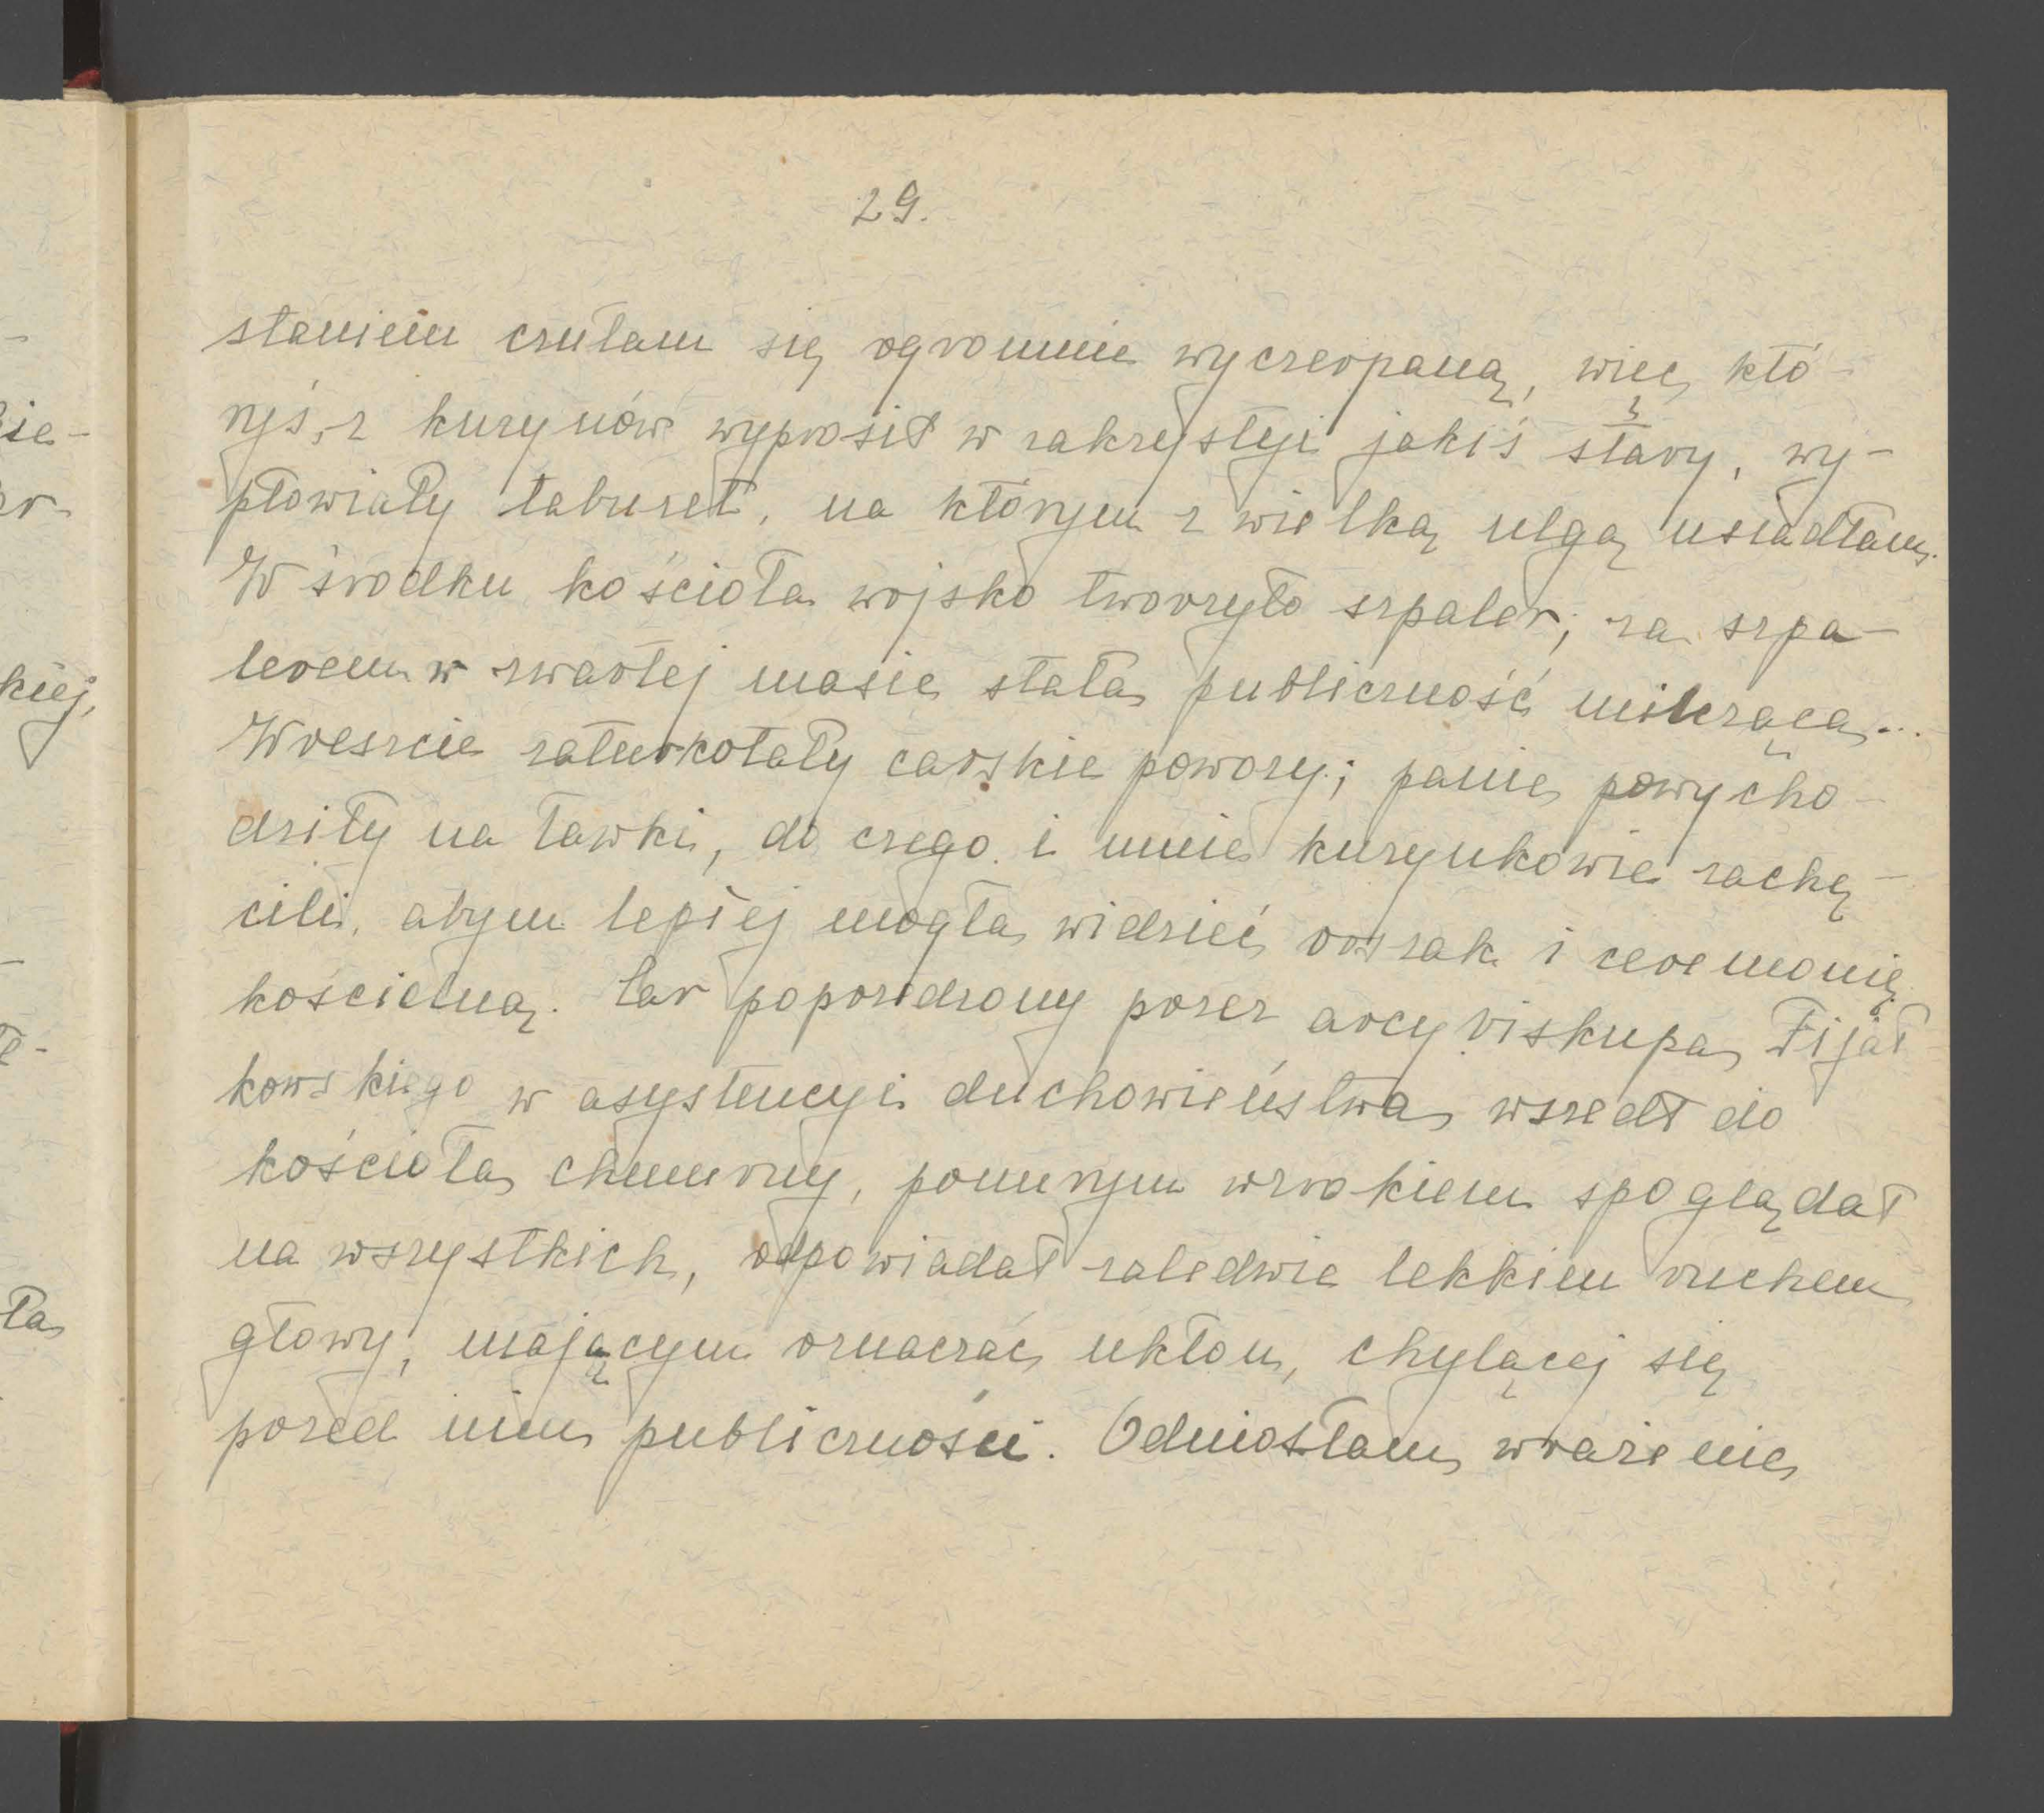 29.
staniem czułam się ogromnie wyczerpaną, więc któ-
ryś z kuzynów wyprosił w zakrystyi jakiś stary, wy-
płowiały taburet, na którym z wielką ulgą usiadłam.
W środku kościoła wojsko tworzyło szpaler; za szpa-
lerem w zwartej masie stała publiczność milcząca...
Wreszcie zaturkotały carskie powozy; panie powycho-
dziły na ławki, do czego i mnie kuzynkowie zachę-
cili, abym lepiej mogła widzieć orszak i ceremonię
kościelną. Car poprzedzony przez arcybiskupa Fijał-
kowskiego w asystencyi duchowieństwa wszedł do
kościoła chmurny, ponurym wzrokiem spoglądał
na wszystkich, odpowiadał zaledwie lekkiem ruchem
głowy, mającym oznaczać ukłon, chylącej się
przed nim publiczności. Odniosłam wrażenie
kiej,
ła